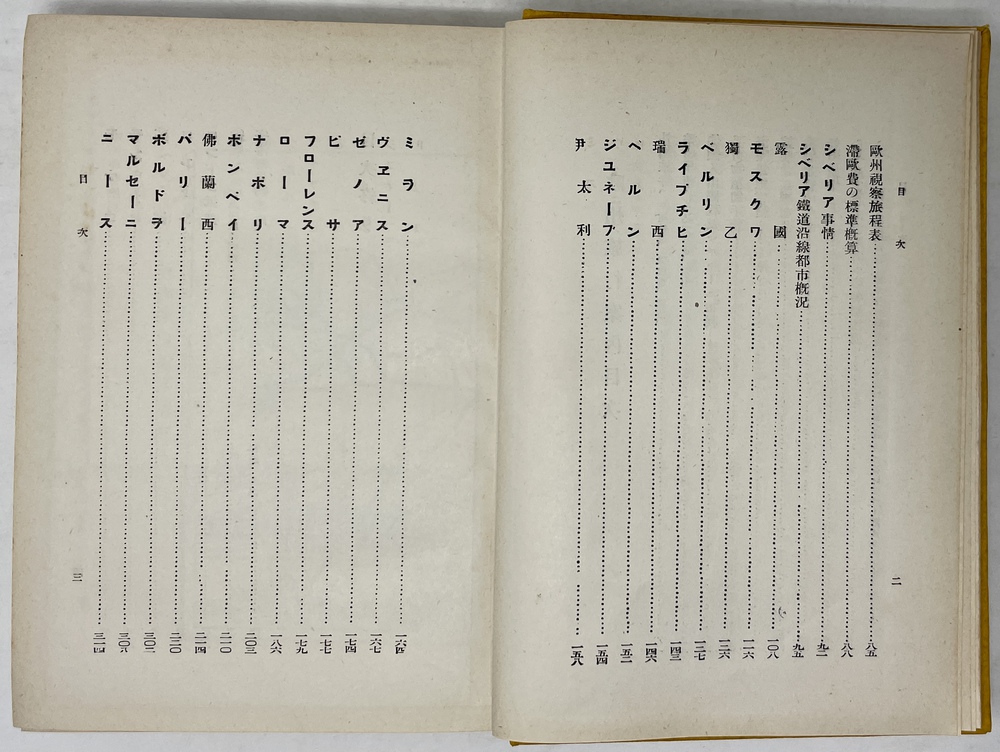 目次
歐州視察旅程表……八五
滯歐費の標準概算……八八
シベリア事情……九二
シベリア鐵道沿線都市概況……九五
露國……一〇八
モスクワ……一一六
獨乙……一二六
ベルリン……一二七
ライプチヒ……一四三
瑞西……一四六
ベルン……一五二
ジユネーブ……一五四
尹太利……一五八
二
ミラン……一六四
ヴエニス……一六七
ゼノア……一七四
ピサ……一七七
フローレンス……一七九
ローマ……一八六
ナポリ……二〇三
ポンペイ……二一〇
佛蘭西……二一四
パリー……二二〇
ボルドラ……三〇二
マルセーニ……三〇八
ニース……三一四
目次
三